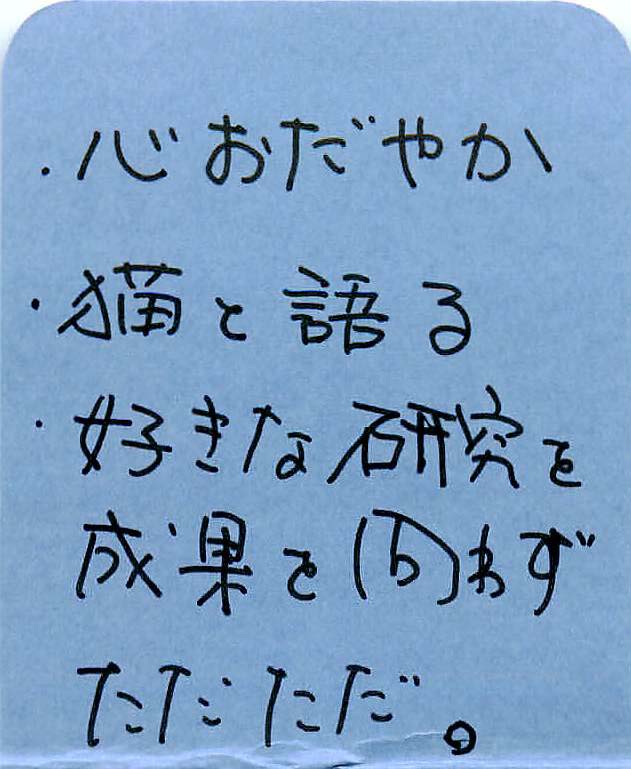 ・心おだやか
・猫と語る
・好きな研究を
成果を問わず
ただただ。